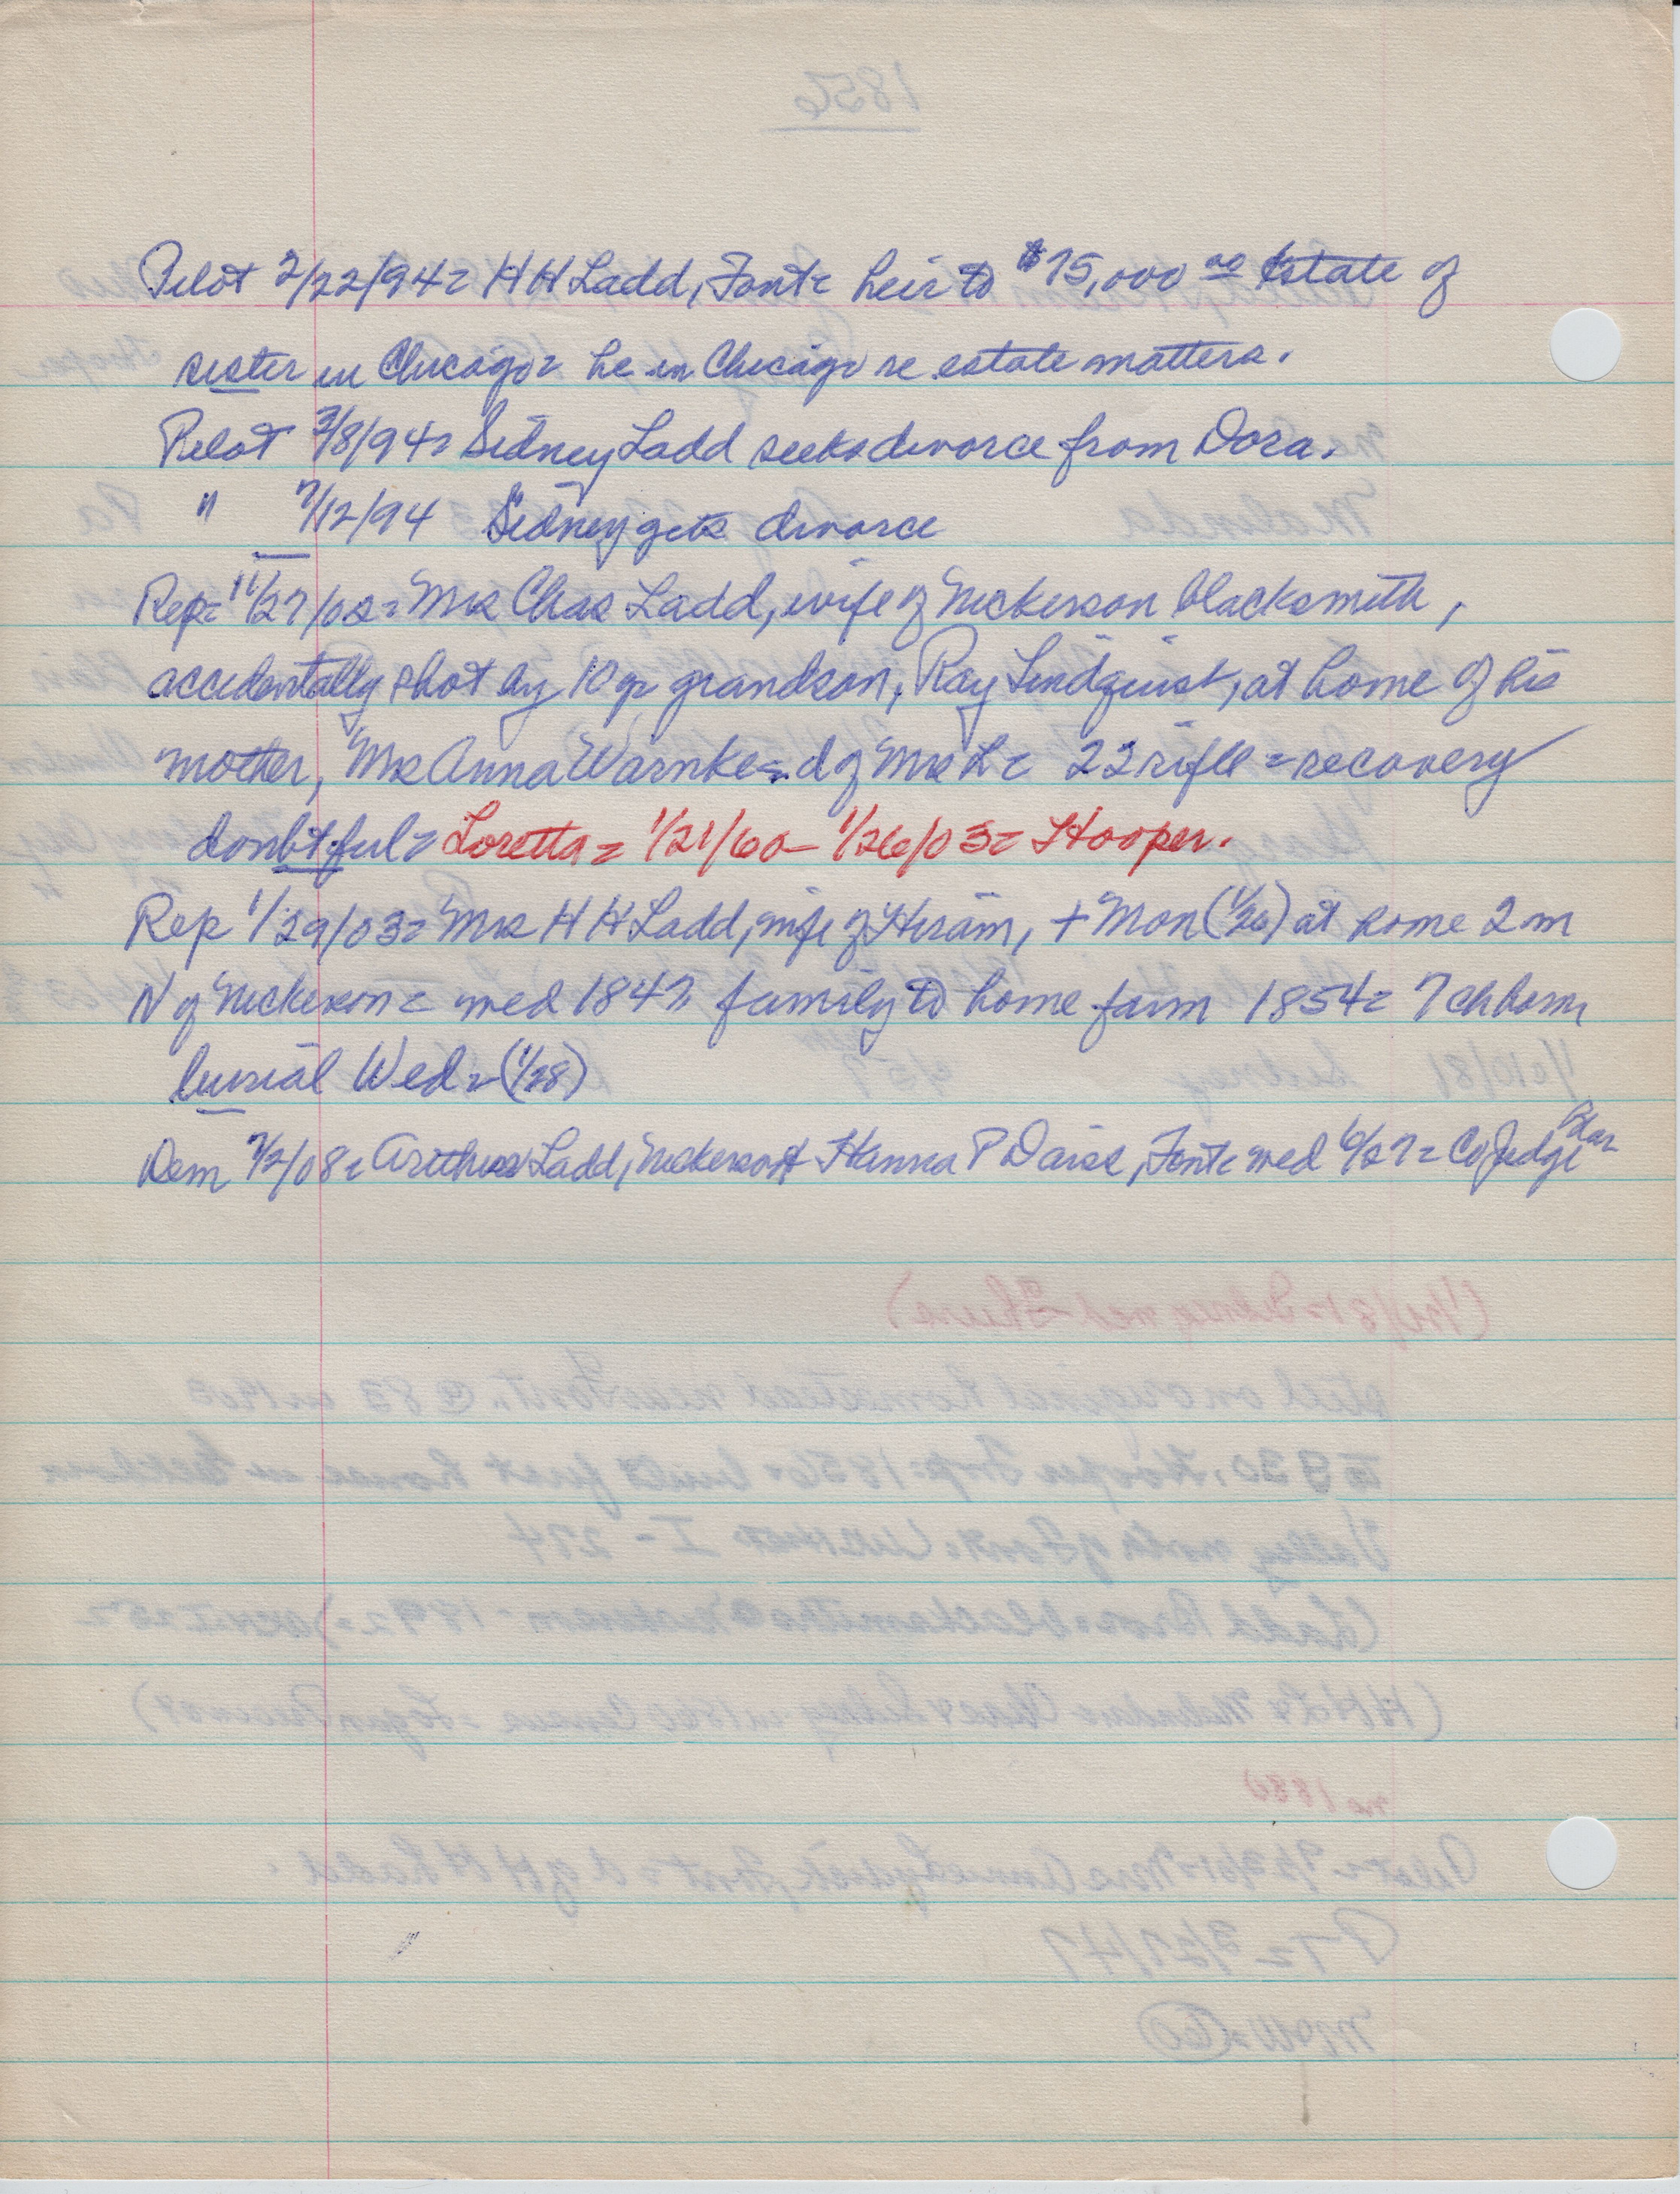 Pilot 2/22/94= HH Ladd, Font= heir to $75,000 00 Estate of
sister in Chicago= he in Chicago re estate matters.
Pilot 3/8/94= Sidney Ladd seeks divorce from Dora.
" 7/12/94 Sidney gets divorce
Rep= 11/27/02= Mrs Chas Ladd, wife of Nickerson blacksmith,
accidentally shot by 10 yr grandson, Ray Lindquist, at home of his
mother, Mrs Anna Warnke= d of Mrs L= 22 rifle = recovery
doubtful= Loretta= 1/21/60- 1/26/03= Hooper.
Rep 1/29/03= Mrs HH Ladd, wife of Hiram, + Mon (1/26) at home 2 m
N of Nickerson= med 1847, family to home farm 1854= 7 ch born,
burial Wed= (1/28)
Dem 7/2/08= Arthur Ladd, Nickerson + Hanna P Daiss, Font= med 6/27= Co Judge